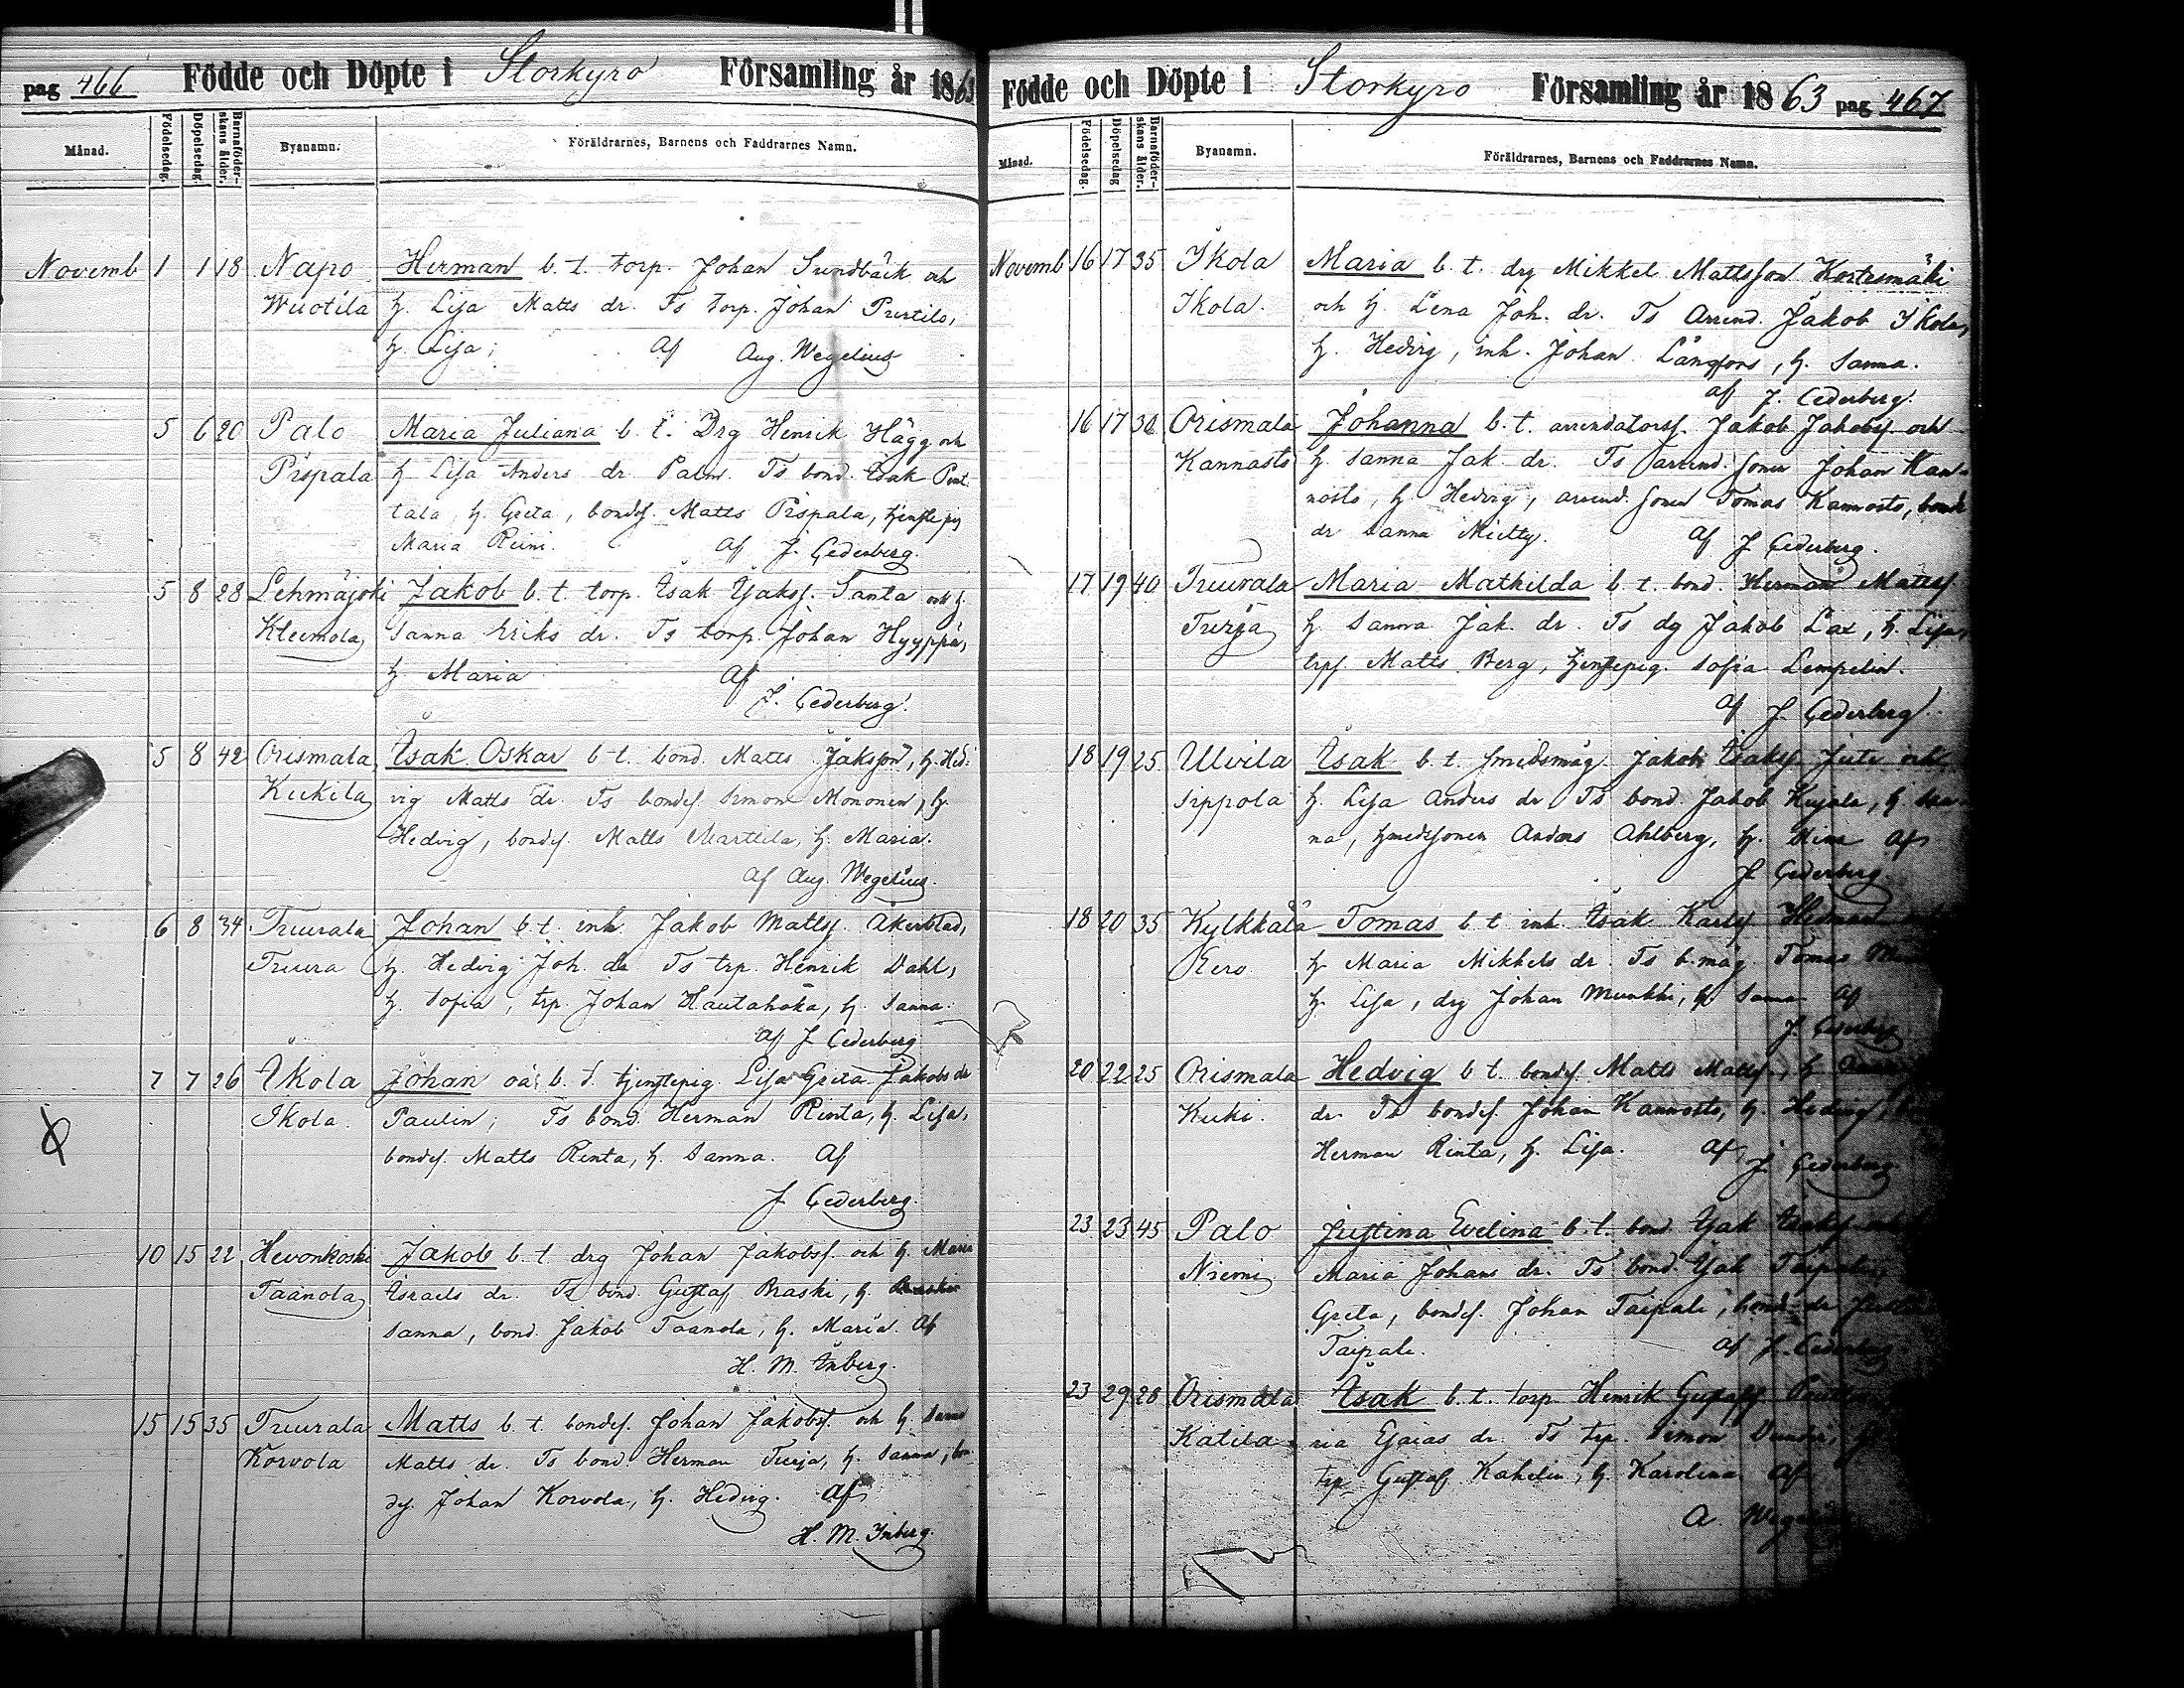 pag 466 Födde och Döpte i Storkyro Församling år 1863
Månad. Födelsedag. Döpelsedag. Barnaföderskans ålder. Byanamn. Föräldrarnes, Barnens och Faddrarnes Namn.
Novemb 1 1 18 Napo Herman b. t. torp. Johan Sundbäck och
Wuotila h. Lisa Matts dr. Ts torp. Johan Purtilo,
h. Lisa; Af Aug. Wegelius
5 6 20 Palo Maria Juliana b. t. Drg Henrik Hägg och
Pispala h Lisa Anders dr. Palm. Ts bond. Isak Pent
tala, h. Greta, bondes. Matts Pispala, tjenstepig
Maria Reini. Af J. Cederberg.
5 8 28 Lehmäjoki Jakob b. t. torp. Isak Isakss. Santa och h.
Kleemola Sanna Eriks dr. Ts torp. Johan Hyyppä,
h. Maria Af
J. Cederberg.
5 8 42 Orismala Isak Oskar b t. bond. Matts Jaksson, h. Hed
Kukila vig Matts dr. Ts bondes. Simon Mononen, h.
Hedvig, bondes. Matts Marttila, h. Maria.
Af Aug. Wegelius.
6 8 34 Tuurala Johan b. t. inh. Jakob Mattss. Åkerblad,
Tuura h. Hedvig Joh. dr Ts trp. Henrik Dahl,
h. Sofia, trp. Johan Hautahoka, h. Sanna.
Af J Cederberg
7 7 26 Ikola Johan oä: b. t. tjenstepig. Lisa Greta Jakobs dr
Ikola. Paulin; Ts bond. Herman Rinta, h. Lisa,
bondes. Matts Rinta, h. Sanna. Af
J Cederberg.
10 15 22 Hevonkoski Jakob b. t. drg Johan Jakobss. och h. Maria
Taanola Israels dr. Ts bond. Gustaf Praski, h.
Sanna, bond. Jakob Taanola, h. Maria. Af
H. M. Inberg.
15 15 35 Tuurala Matts b. t. bondes. Johan Jakobss. och h. Sanna
Korvola Matts dr. Ts bond. Herman Turja, h. Sanna, bon
des. Johan Korvola, h. Hedvig. Af
H. M. Inberg.
Födde och Döpte i Storkyro Församling år 1863 pag 467
Månad. Födelsedag. Döpelsedag Barnaföderskans ålder. Byanamn. Föräldrarnes, Barnens och Faddrarnes Namn.
Novemb 16 17 35 Ikola Maria b. t. drg Mikkel Mattsson Kortesmäki
Ikola. och h. Lena Joh. dr. Ts Arrend. Jakob Ikola,
h. Hedvig, inh. Johan Långfors, h. Sanna.
af J. Cederberg.
16 17 30 Orismala Johanna b. t. arrendatorss. Jakob Jakobss. och
Kannasto h. Sanna Jak. dr. Ts arrend. sonen Johan Kan-
nasto, h. Hedvig, arrend. sonen Tomas Kannasto, bonde
dr Sanna Mietty. Af J Cederberg.
17 19 40 Tuurala Maria Mathilda b. t. bond. Herman Mattss
Turja h Sanna Jak. dr. Ts dg Jakob Lax, h. Lisa,
trps. Matts Berg, tjenstepig. Sofia Lempelin.
af J. Cederberg.
18 19 25 Ulvila Isak b. t. smedsmåg Jakob Isakss. Juti och
Sippola h. Lisa Anders dr Ts bond. Jakob Kujala, h. San
na, smedssonen Anders Ahlberg, h. Af
J. Cederberg.
18 20 35 Kylkkälä Tomas b t inh. Isak Karlss
Kero h Maria Mikkels dr. Ts b. måg. Tomas
h. Lisa, drg Johan Munkki, h. Sanna Af
J. Cederberg
20 22 25 Orismala Hedvig b t. bondes. Matts Mattss, h
Kuki. dr Ts bondes. Johan Kannosto, h. Hedvig,
Herman Rinta, h. Lisa. Af J. Cederberg.
23 23 45 Palo Justina Evelina b. t. bond. Isak Isakss och
Niemi Maria Johans dr. Ts bond. Isak Taipale,
Greta, bondes. Johan Taipale, bond. dr
Taipale. af J. Cederberg
23 29 28 Orismala Isak b. t. torp Henrik Gustafss
Katila ria Esaias dr. Ts trp. Simon
trp Gustaf Kahelin, h. Karolina. Af
A Wegelius